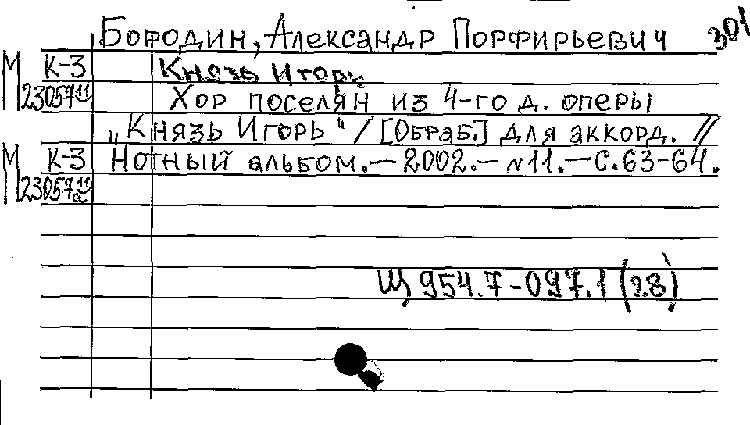 Бородин, Александр Порфирьевич 301
М К-3 Князь Игорь
23057 Хор поселян из 4-го д. оперы
„Князь Игорь" / [Обраб.] для аккорд. //
М К-3 Нотный альбом. — 2002. — N11. — С. 63-64.
23057
Щ 954.7-097.1 (2.8)